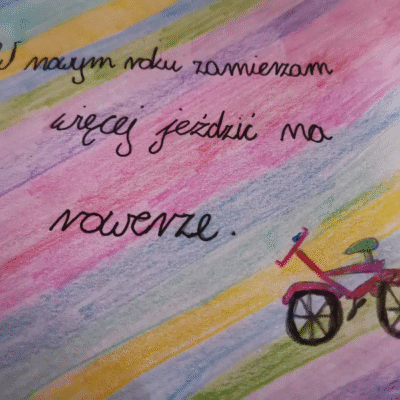 W nowym roku zamierzam
więcej jeździć na
rowerze.